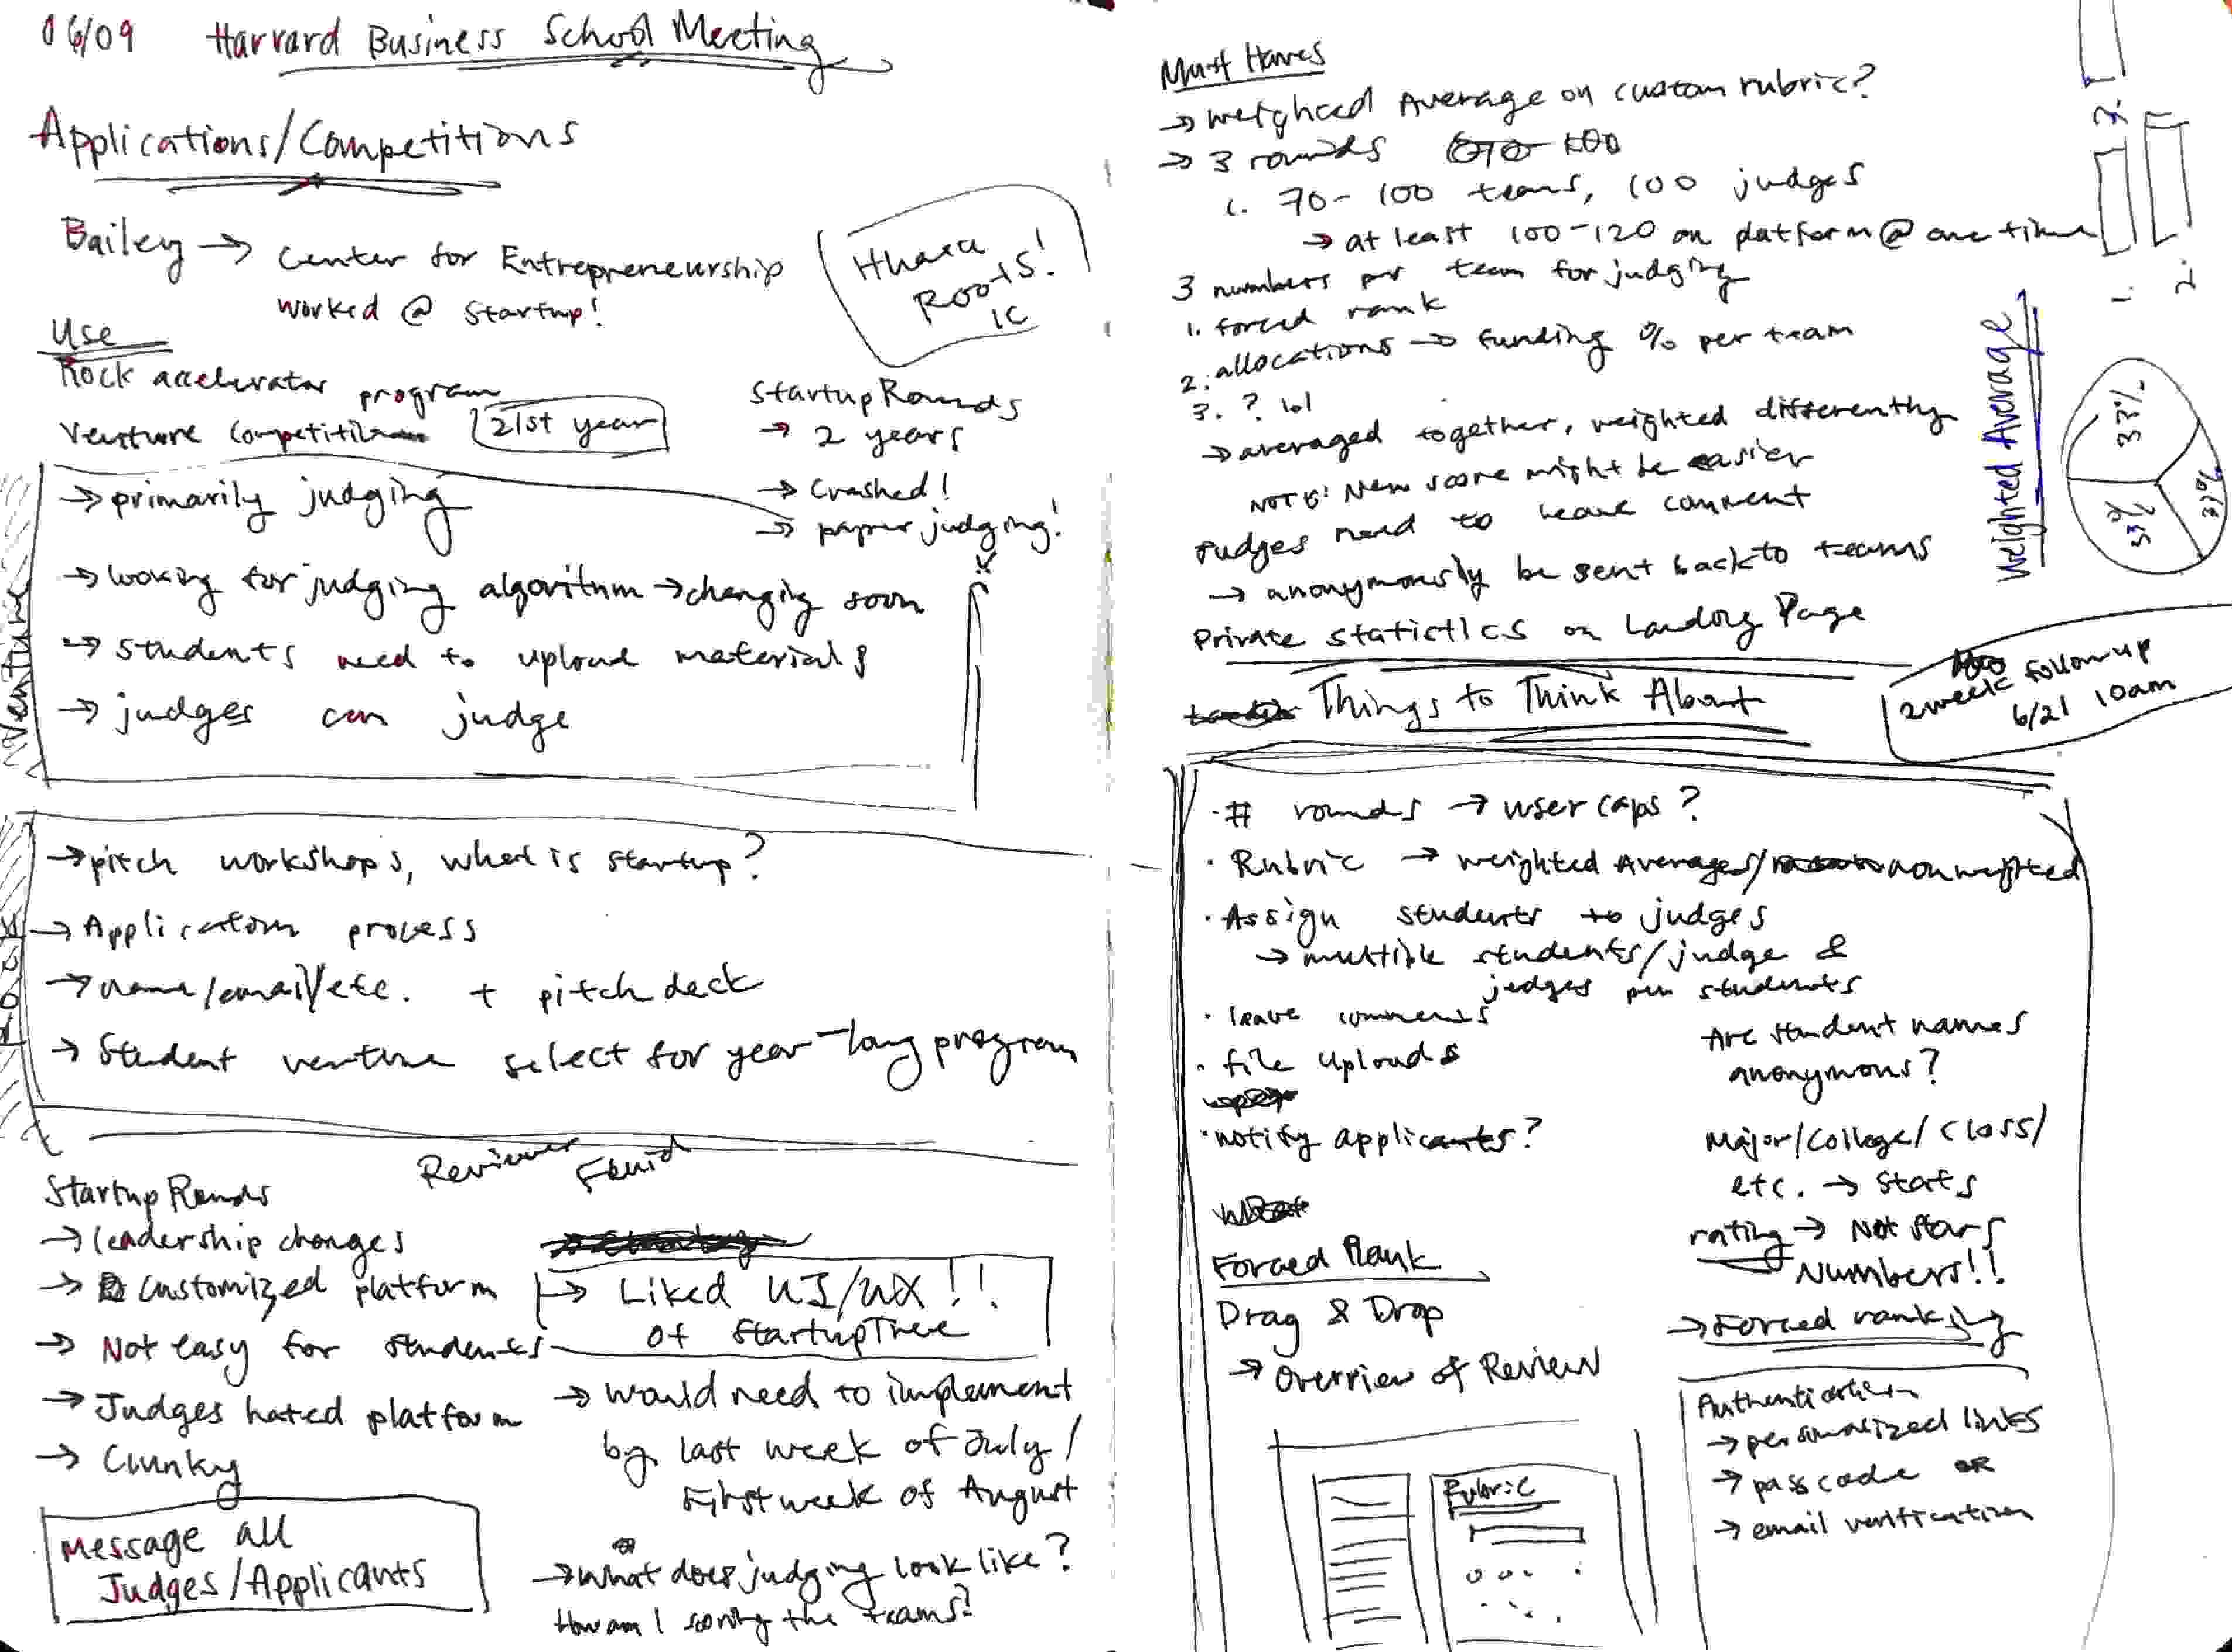 06/09 Harvard Business School Meeting
Applications/Competitions
Bailey → Center for Entrepreneurship
worked @ startup!
Ithaca
Roots!
IC
Use
Rock accelerator program
Venture Competition
21st year
StartupRounds
→ 2 years
→ Crashed!
→ paper judging!
Venture
→ primarily judging
→ looking for judging algorithm → changing soon
→ students need to upload materials
→ judges can judge
Rock
→ pitch workshops, what is startup?
→ Application process
→ name/email/etc. + pitch deck
→ Student venture select for year-long program
Reviewer
Startup Rounds
→ leadership changes
→ Customized platform
→ Not easy for students
→ Judges hated platform
→ Clunky
Message all
Judges/Applicants
→ Liked UI/UX!!
of StartupTree
→ would need to implement
by last week of July/
First week of August
→ what does judging look like?
How am I scoring the teams?
Must Haves
→ weighted Average on custom rubric?
→ 3 rounds
1. 70-100 teams, 100 judges
→ at least 100-120 on platform @ one time
3 numbers per team for judging
1. forced rank
2. allocations → funding % per team
3. ? lol
→ averaged together, weighted differently
NOTE: New score might be easier
Judges need to leave comment
→ anonymously be sent back to teams
Private statistics on Landing Page
Weighted Average
33%
33%
33%
1.
2.
3.
2 week followup
6/21 10am
Things to Think About
· # rounds → user caps?
· Rubric → weighted Averages/nonweighted
· Assign students to judges
→ multiple students/judge &
judges per students
· leave comments
· file uploads
· notify applicants?
Are student names
anonymous?
Major/College/Class/
etc. → stats
rating → Not stars
Numbers!!
→ Forced ranking
Forced Rank
Drag & Drop
→ Overview of Review
Rubric
Authentication
→ personalized links
→ passcode OR
→ email verification